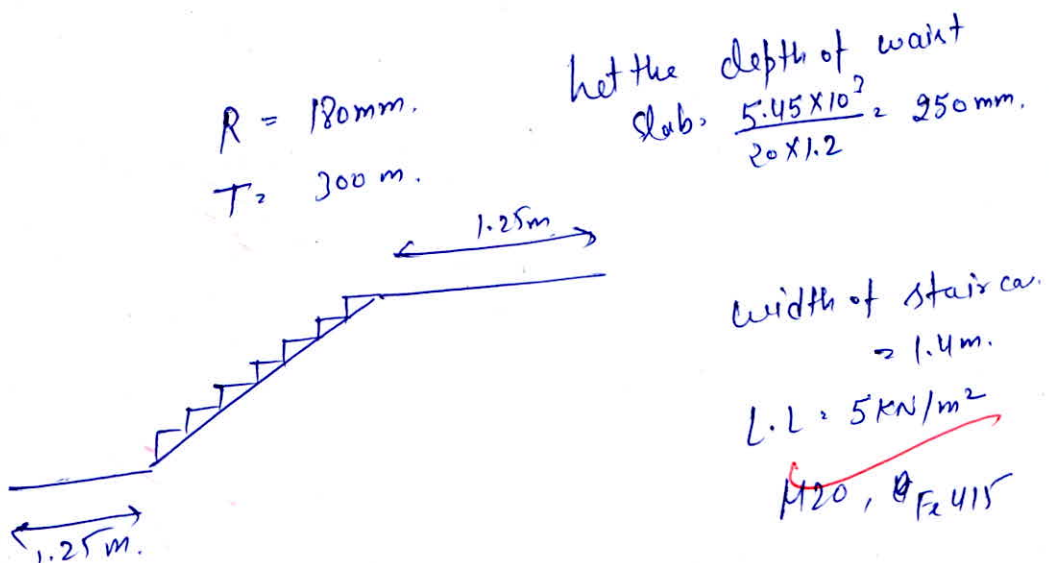 R = 180mm.
T = 300 m.
Let the depth of waist
Slab = 5.45×10³ / 20×1.2 = 250mm.
1.25m
1.25m.
width of stair ca.
= 1.4m.
L.L = 5 KN/m²
M20, Fe 415